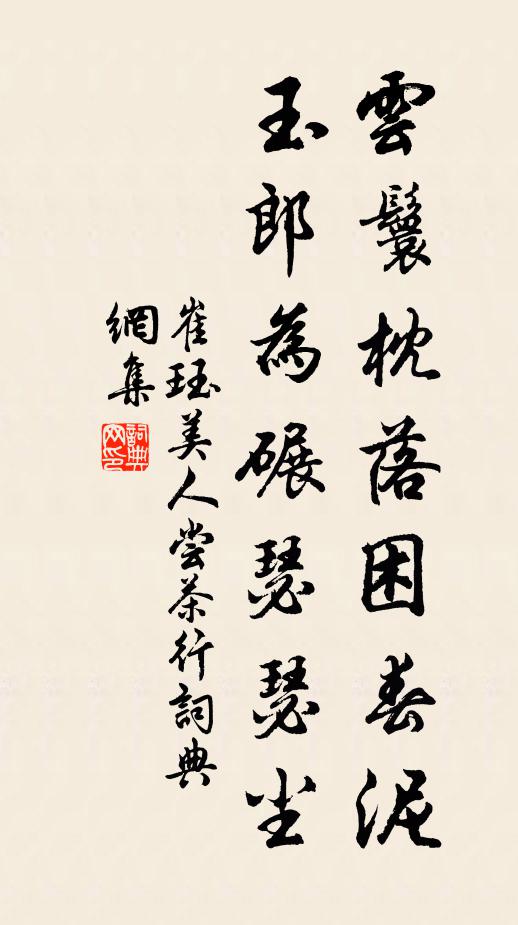 雲鬟枕落困春泥
玉郎為碾瑟瑟尘
崔珏美人尝茶行詞典
網集
詞典
网印